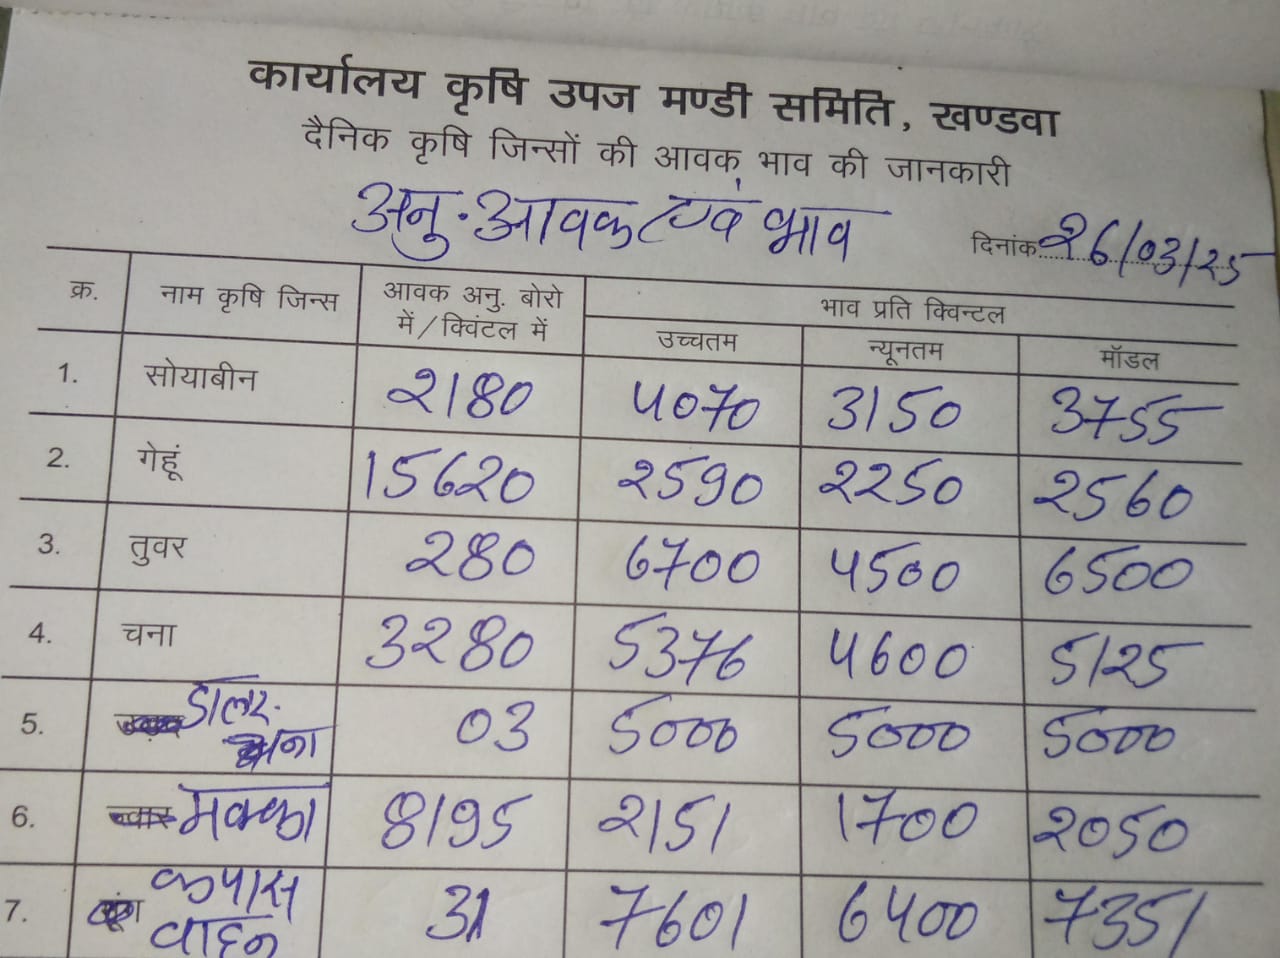 कार्यालय कृषि उपज मण्डी समिति, खण्डवा
दैनिक कृषि जिन्सों की आवक, भाव की जानकारी
अनु. आवक एवं भाव
दिनांक 26/03/25
क्र. नाम कृषि जिन्स आवक अनु. बोरो में/क्विंटल में भाव प्रति क्विन्टल
उच्चतम न्यूनतम मॉडल
1. सोयाबीन 2180 4070 3150 3755
2. गेहूं 15620 2590 2250 2560
3. तुवर 280 6700 4500 6500
4. चना 3280 5376 4600 5125
5. डालर चना 03 5000 5000 5000
6. मक्का 8195 2151 1700 2050
7. कपास वाहन 31 7601 6400 7351